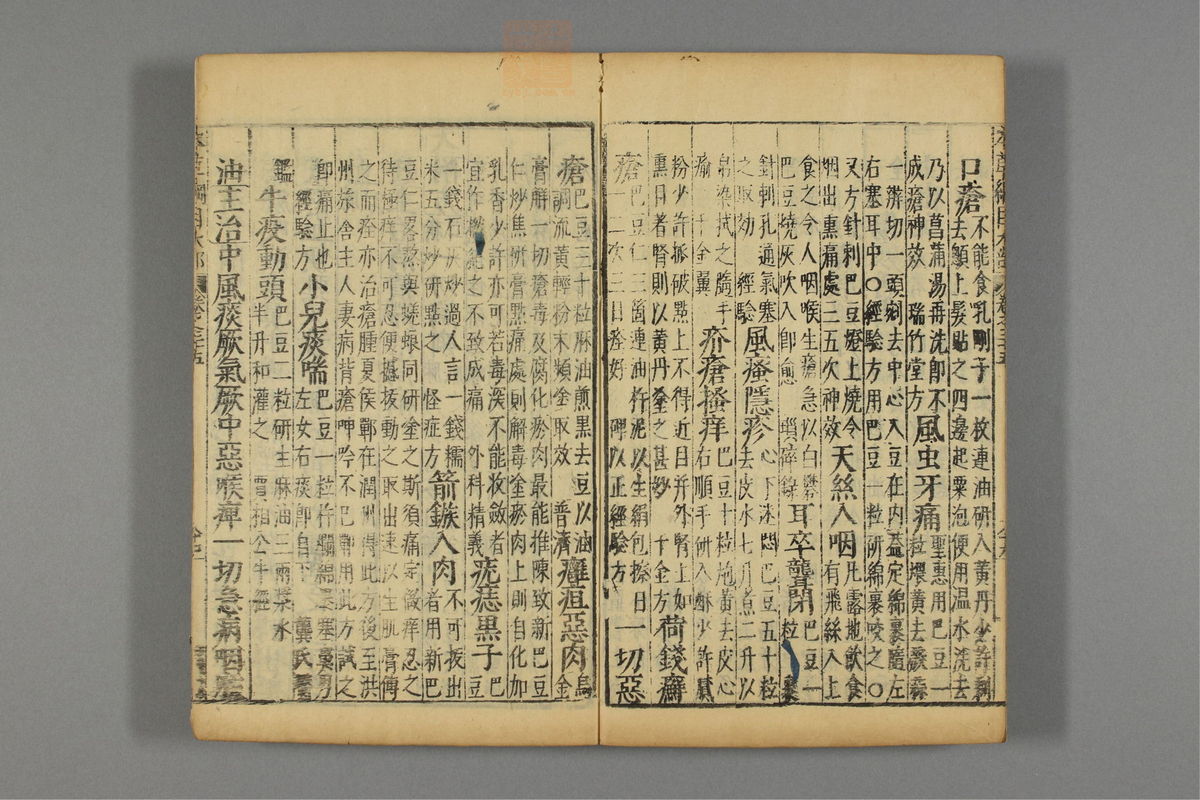 口瘡不能食乳剛子一枚連油研入黃丹少許剃
去顱上髮貼之四邊起粟泡便用温水洗去
乃以菖蒲湯再洗即不
成瘡神效 瑞竹堂方
風虫牙痛聖惠用巴豆一
粒煨黃去殼蒜
一瓣切一頭剜去中心入豆在内蓋定綿裹隨左
右塞耳中〇經驗方用巴豆一粒研綿裹咬之〇
又方針刺巴豆燈上燒令
烟出熏痛處三五次神效
天絲入咽凡露地飲食
有飛絲入上
食之令人咽喉生瘡急以白礬
巴豆燒灰吹入即愈 瑣碎錄
耳卒聾閉巴豆一
粒蠟裹
針刺孔通氣塞
之取効 經驗
風瘙隱疹心下迷悶巴豆五十粒
去皮水七升煮二升以
帛染拭之隨手
瘉 千金翼
疥瘡搔痒巴豆十粒炮黃去皮心
右順手研入酥少許膩
粉少許抓破點上不得近目并外腎上如
熏目著腎則以黃丹塗之甚妙 千金方
荷錢癬
瘡巴豆仁三箇連油杵泥以生絹包擦日
一二次三日痊好 碑以正經驗方
一切惡
瘡巴豆三十粒麻油煎黑去豆以油
調流黃輕粉末頻塗取效 普濟
癰疽惡肉烏
金
膏解一切瘡毒及腐化瘀肉最能推陳致新巴豆
仁炒焦研膏點痛處則解毒塗瘀肉上則自化加
乳香少許亦可若毒深不能收斂者
宜作撚紝之不致成痛 外科精義
疣痣黑子巴
豆
一錢石灰炒過人言一錢糯
米五分炒研點之 怪症方
箭鏃入肉不可拔出
者用新巴
豆仁畧熬與蜣蜋同研塗之斯須痛定微痒忍之
待極痒不可忍便撼拔動之取出速以生肌膏傅
之而痊亦治瘡腫夏侯鄆在潤州得此方後至洪
州旅舍主人妻病背瘡呻吟不已鄆用此方試之
即痛止也
經驗方
小兒痰喘巴豆一粒杵爛綿裹塞鼻男
左女右痰即自下 龔氏醫
鑑
牛疫動頭巴豆二粒研生麻油三兩漿水
半升和灌之 賈相公牛經
油主治中風痰厥氣厥中惡喉痺一切急病咽喉